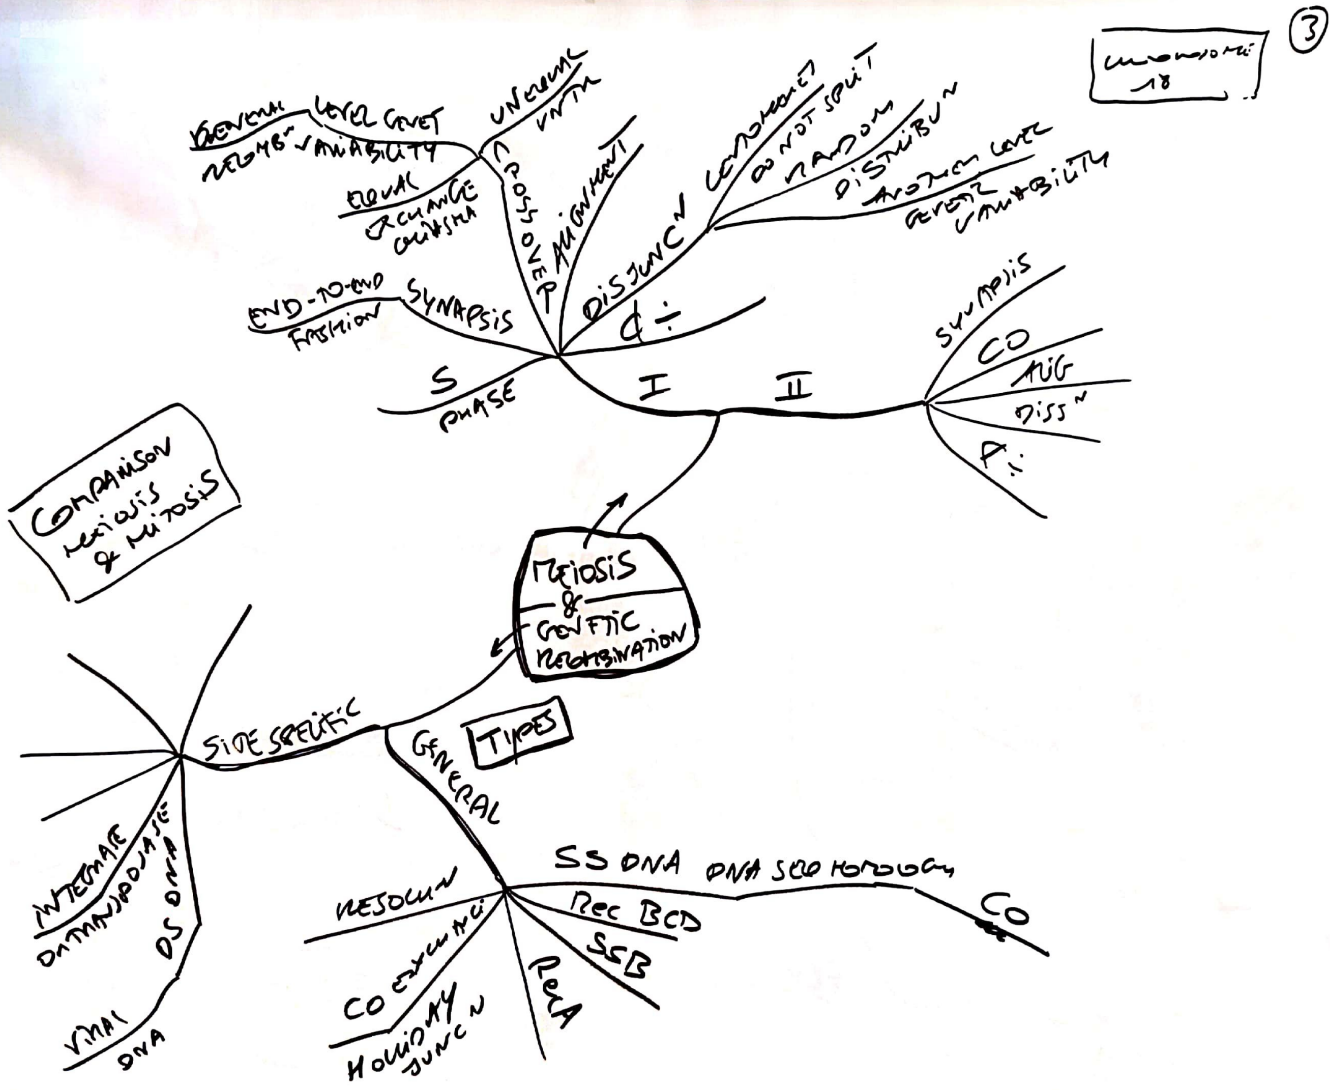 3
CHROMOSOME
18
GENERAL
RECOMBN
LEVEL GENET
VARIABILITY
UNEQUAL
VNTR
EQUAL
EXCHANGE
CHIASMA
CROSSOVER
ALIGNMENT
DISJUNCN
CENTROMERES
DO NOT SPLIT
RANDOM
DISTRIBUN
ANOTHER LEVEL
GENETIC
VARIABILITY
END-TO-END
FASHION
SYNAPSIS
S
PHASE
C ÷
I
II
SYNAPSIS
CO
ALIG
DISSN
÷
COMPARISON
MEIOSIS
& MITOSIS
MEIOSIS
&
GENETIC
RECOMBINATION
TYPES
SITE SPECIFIC
GENERAL
INTEGRASE
OR TRANSPOSASE
DS DNA
VIRAL
DNA
RESOLUN
CO EXCHANGE
HOLLIDAY
JUNCN
RecA
SSB
Rec BCD
SS DNA
DNA SEQ HOMOLOGY
CO